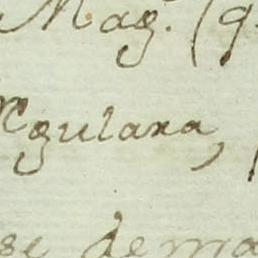 Mag. (q
Rgulara,
se dema